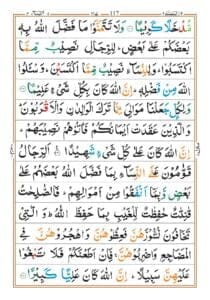 مُّدْخَلًا كَرِيْمًا ۝ وَلَا تَتَمَنَّوْا مَا فَضَّلَ اللّٰهُ بِهٖ
بَعْضَكُمْ عَلٰى بَعْضٍ ؕ لِلرِّجَالِ نَصِيْبٌ مِّمَّا
اكْتَسَبُوْا ؕ وَلِلنِّسَآءِ نَصِيْبٌ مِّمَّا اكْتَسَبْنَ ؕ وَسْـَٔلُوا
اللّٰهَ مِنْ فَضْلِهٖ ؕ اِنَّ اللّٰهَ كَانَ بِكُلِّ شَیْءٍ عَلِيْمًا ۝
وَلِكُلٍّ جَعَلْنَا مَوَالِيَ مِمَّا تَرَكَ الْوَالِدٰنِ وَالْاَقْرَبُوْنَ ؕ
وَالَّذِيْنَ عَقَدَتْ اَيْمَانُكُمْ فَاٰتُوْهُمْ نَصِيْبَهُمْ ؕ
اِنَّ اللّٰهَ كَانَ عَلٰى كُلِّ شَیْءٍ شَهِيْدًا ۝ اَلرِّجَالُ
قَوّٰمُوْنَ عَلَى النِّسَآءِ بِمَا فَضَّلَ اللّٰهُ بَعْضَهُمْ عَلٰى
بَعْضٍ وَّبِمَآ اَنْفَقُوْا مِنْ اَمْوَالِهِمْ ؕ فَالصّٰلِحٰتُ
قٰنِتٰتٌ حٰفِظٰتٌ لِّلْغَيْبِ بِمَا حَفِظَ اللّٰهُ ؕ وَالّٰتِيْ
تَخَافُوْنَ نُشُوْزَهُنَّ فَعِظُوْهُنَّ وَاهْجُرُوْهُنَّ فِي
الْمَضَاجِعِ وَاضْرِبُوْهُنَّ ۚ فَاِنْ اَطَعْنَكُمْ فَلَا تَبْغُوْا
عَلَيْهِنَّ سَبِيْلًا ؕ اِنَّ اللّٰهَ كَانَ عَلِيًّا كَبِيْرًا ۝